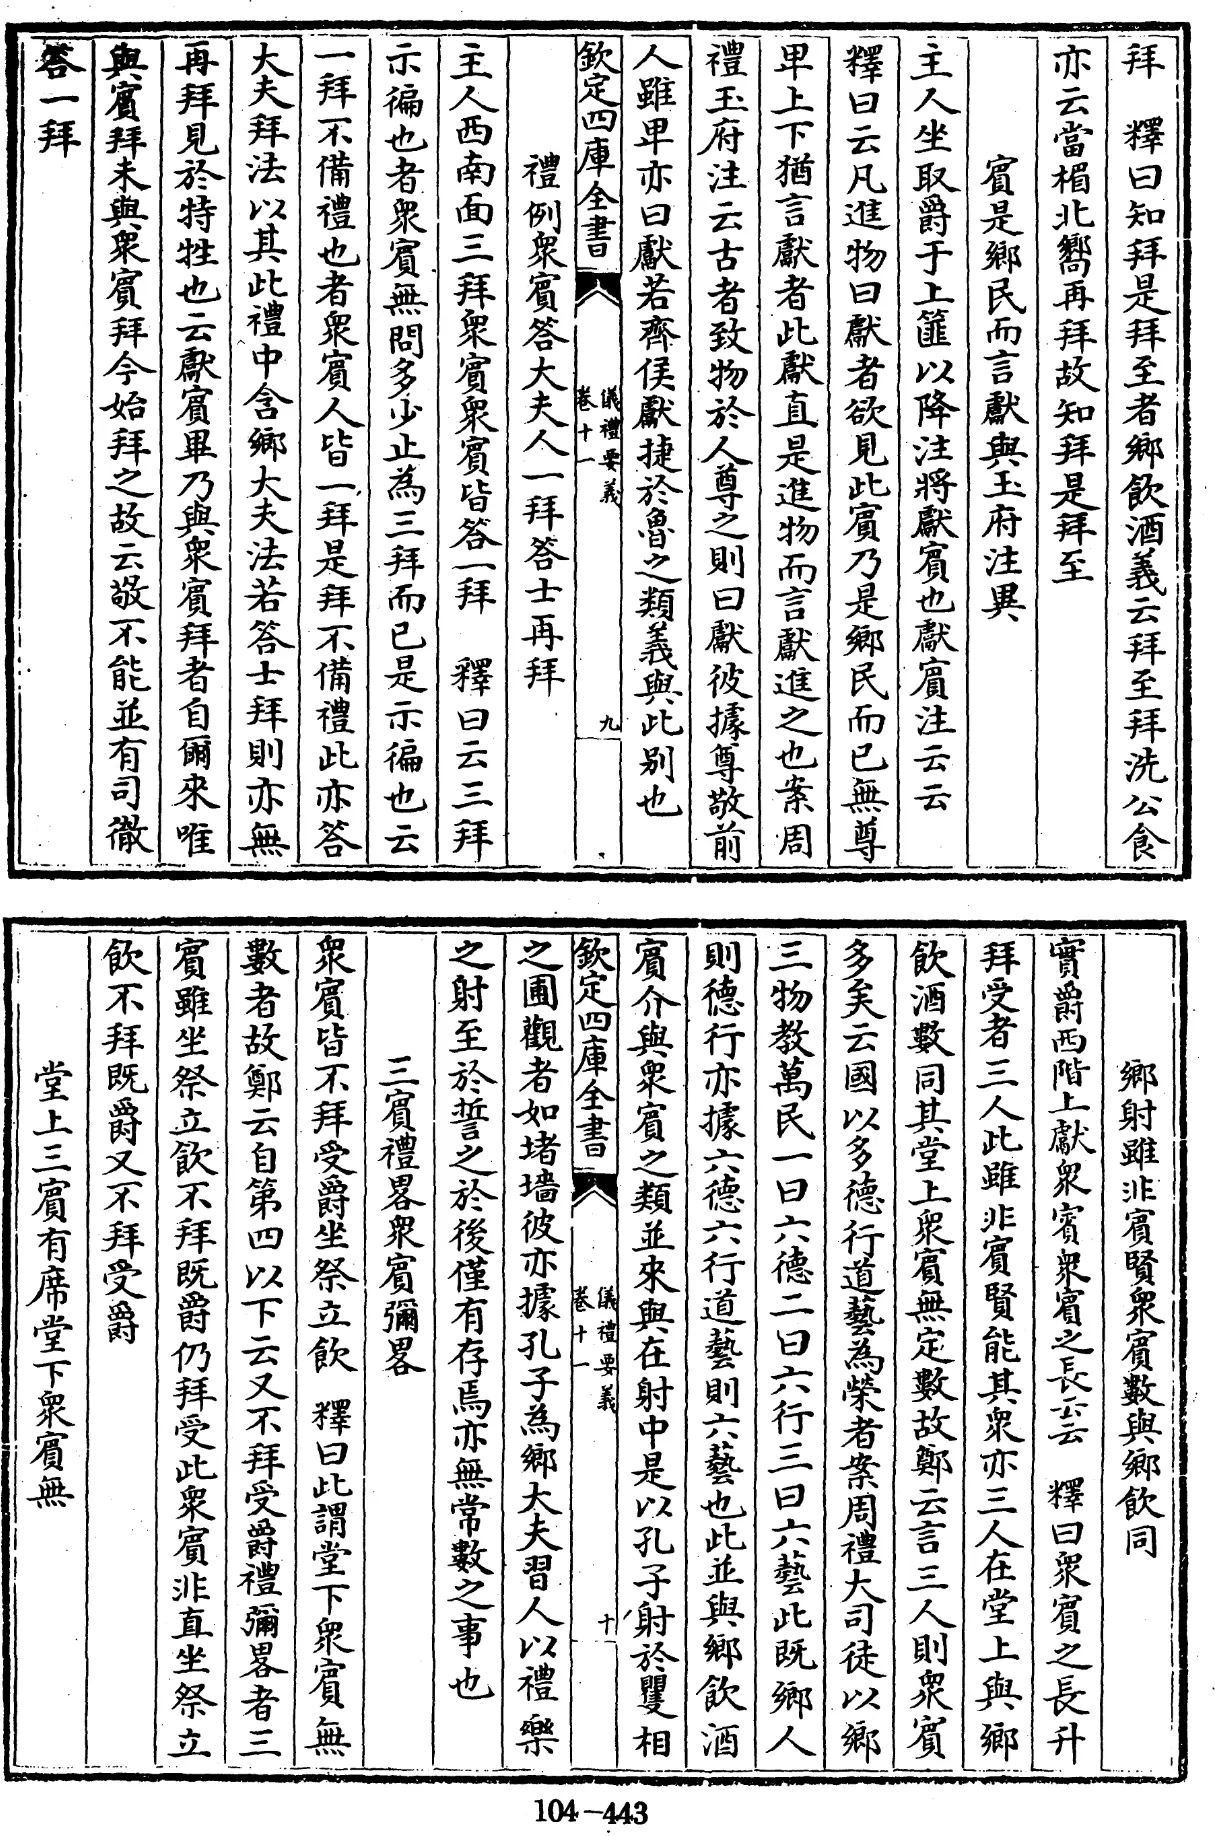 拜　釋曰知拜是拜至者鄉飲酒義云拜至拜洗公食
亦云當楣北嚮再拜故知拜是拜至
賓是鄉民而言獻與玉府注異
主人坐取爵于上篚以降注將獻賓也獻賓注云云
釋曰云凡進物曰獻者欲見此賓乃是鄉民而已無尊
卑上下猶言獻者此獻直是進物而言獻進之也案周
禮玉府注云古者致物於人尊之則曰獻彼據尊敬前
人雖卑亦曰獻若齊侯獻捷於魯之類義與此別也
欽定四庫全書
儀禮要義
卷十一
九
禮例衆賓答大夫人一拜答士再拜
主人西南面三拜衆賓衆賓皆答一拜　釋曰云三拜
示徧也者衆賓無問多少止為三拜而已是示徧也云
一拜不備禮也者衆賓人皆一拜是拜不備禮此亦答
大夫拜法以其此禮中含鄉大夫法若答士拜則亦無
再拜見於特牲也云獻賓畢乃與衆賓拜者自爾來唯
與賓拜未與衆賓拜今始拜之故云敬不能並有司徹
答一拜
鄉射雖非賓賢衆賓數與鄉飲同
實爵西階上獻衆賓衆賓之長云云　釋曰衆賓之長升
拜受者三人此雖非賓賢能其衆亦三人在堂上與鄉
飲酒數同其堂上衆賓無定數故鄭云言三人則衆賓
多矣云國以多德行道藝為榮者案周禮大司徒以鄉
三物教萬民一曰六德二曰六行三曰六藝此既鄉人
則德行亦據六德六行道藝則六藝也此並與鄉飲酒
賓介與衆賓之類並來與在射中是以孔子射於矍相
欽定四庫全書
儀禮要義
卷十一
十
之圃觀者如堵墻彼亦據孔子為鄉大夫習人以禮樂
之射至於誓之於後僅有存焉亦無常數之事也
三賓禮畧衆賓彌畧
衆賓皆不拜受爵坐祭立飲　釋曰此謂堂下衆賓無
數者故鄭云自第四以下云又不拜受爵禮彌畧者三
賓雖坐祭立飲不拜既爵仍拜受此衆賓非直坐祭立
飲不拜既爵又不拜受爵
堂上三賓有席堂下衆賓無
104-443